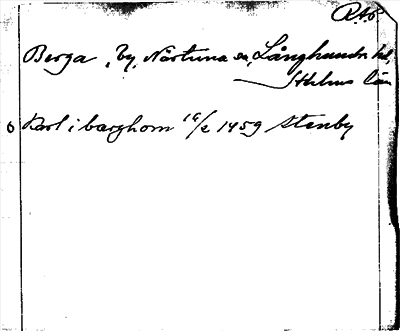 RAp
Berga, by, Närtuna sn, Långhundr. hd,
Sthlms län
Karl i bærghom 14/2 1459 Stenby